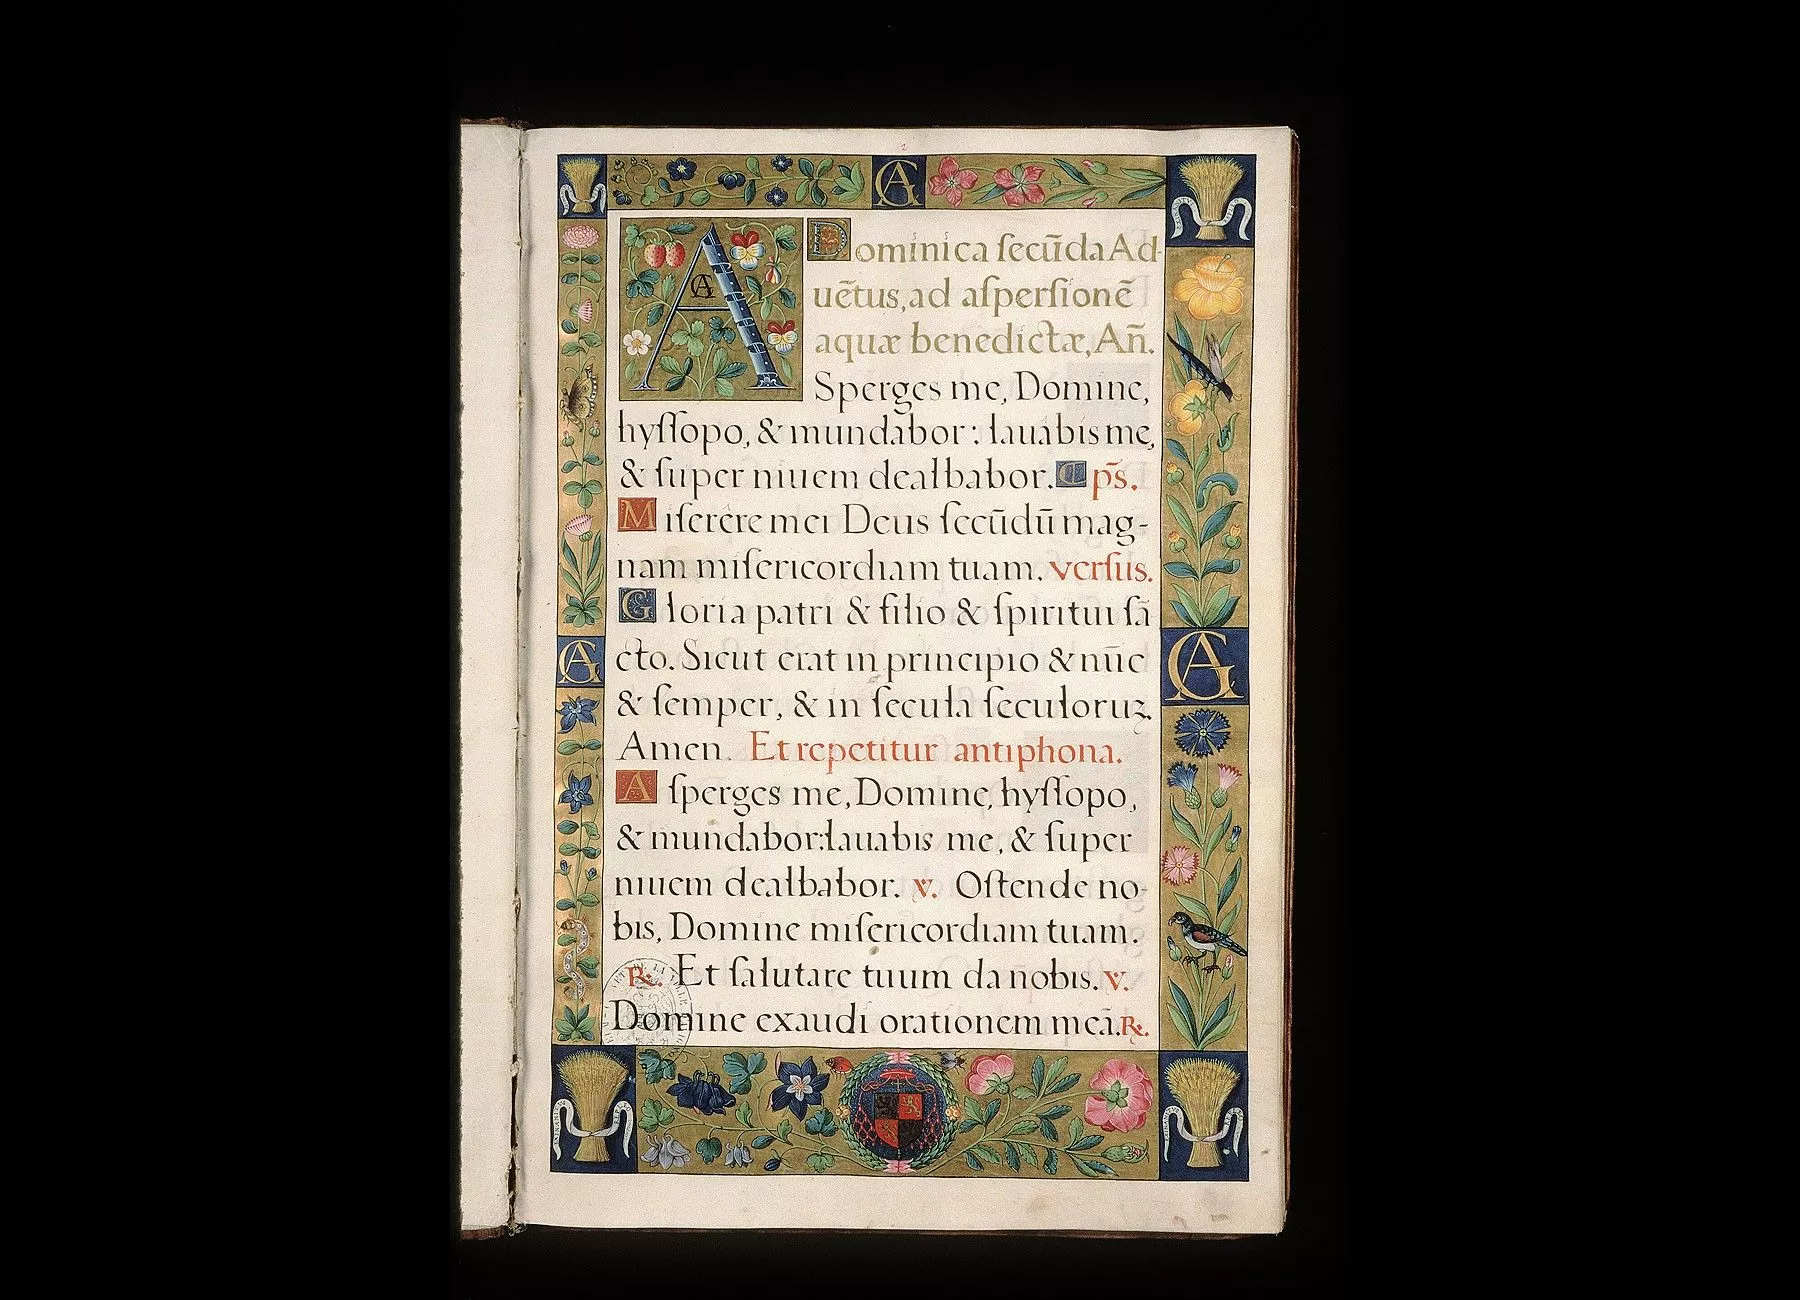 2
AG
Dominica ſecūda Ad-
uētus, ad aſperſionē
aquæ benedictæ, Añ.
ASperges me, Domine,
hyſſopo, & mundabor: lauabis me,
& ſuper niuem dealbabor. ps̄.
Miſerere mei Deus ſecūdū mag-
nam miſericordiam tuam. verſus.
Gloria patri & filio & ſpiritui ſā
cto. Sicut erat in principio & nūc
& ſemper, & in ſecula ſeculoruꝫ.
Amen. Et repetitur antiphona.
Aſperges me, Domine, hyſſopo,
& mundabor: lauabis me, & ſuper
niuem dealbabor. v. Oſtende no-
bis, Domine miſericordiam tuam.
℟. Et ſalutare tuum da nobis. v.
Domine exaudi orationem meā. ℟.
AG
AG